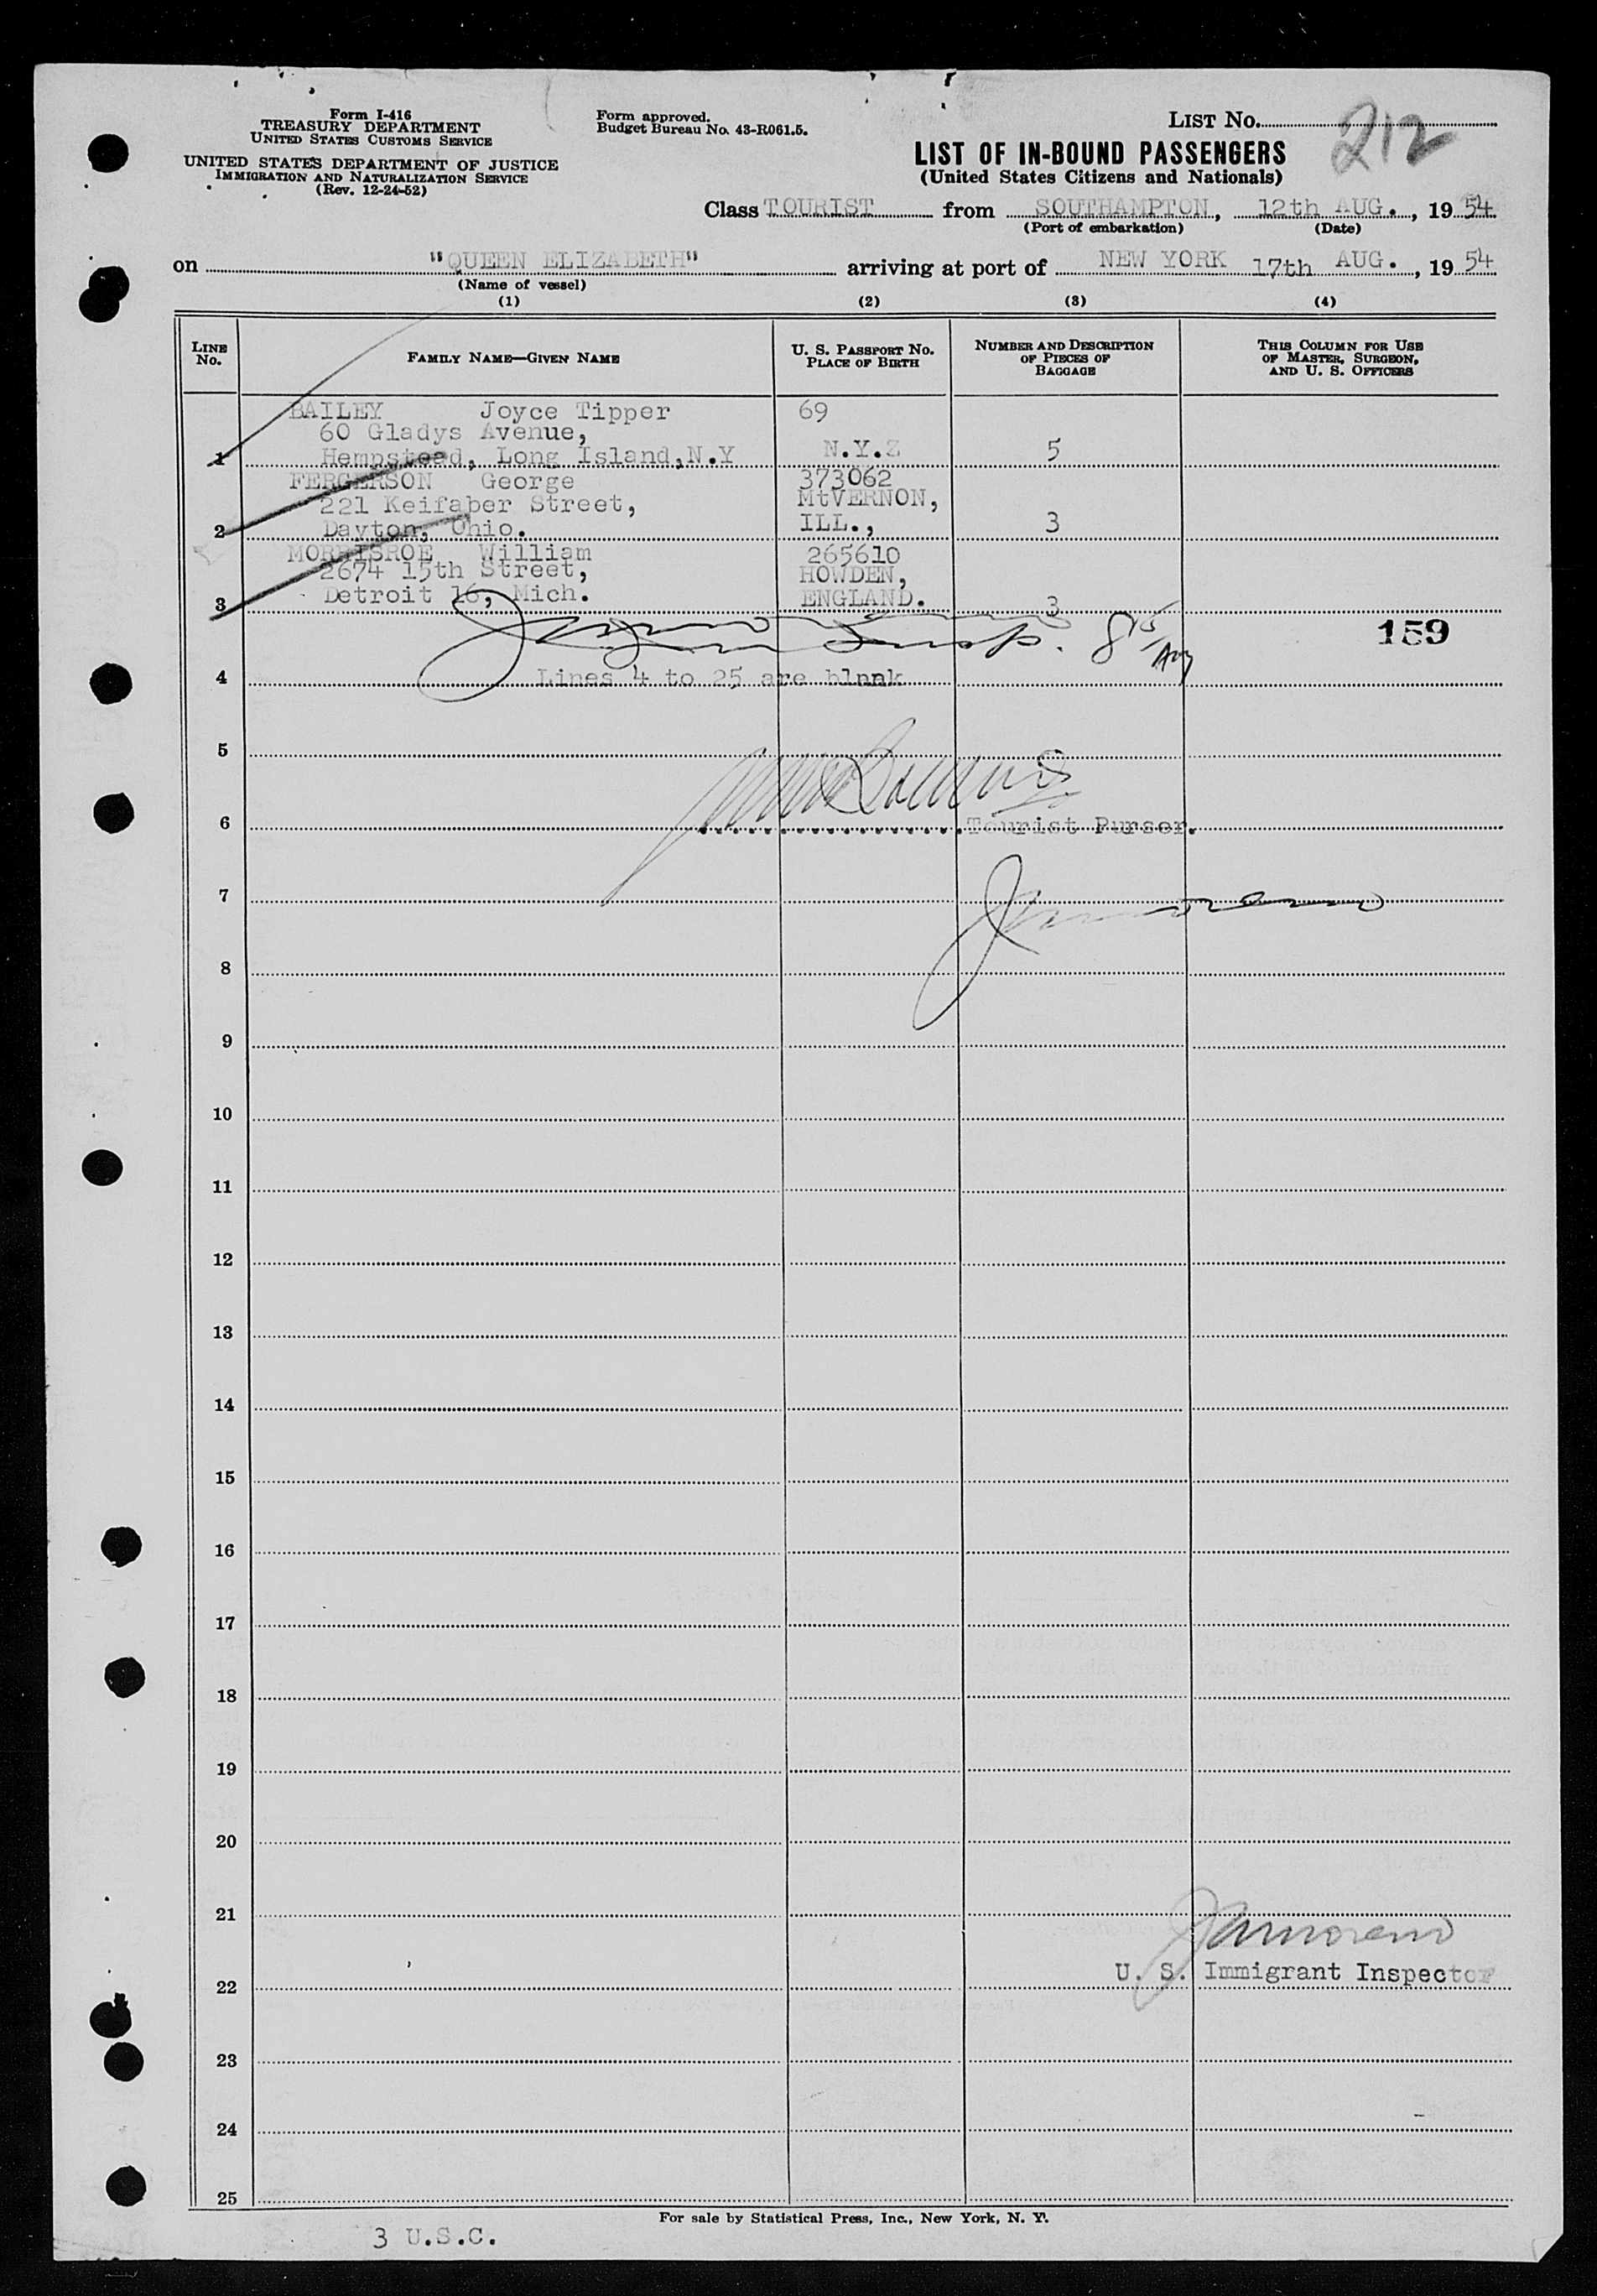 Form I-416
TREASURY DEPARTMENT
UNITED STATES CUSTOMS SERVICE
UNITED STATES DEPARTMENT OF JUSTICE
IMMIGRATION AND NATURALIZATION SERVICE
(Rev. 12-24-52)
Form approved.
Budget Bureau No. 43-R061.5.
LIST NO. 212
LIST OF IN-BOUND PASSENGERS
(United States Citizens and Nationals)
Class TOURIST from SOUTHAMPTON, 12th AUG., 19 54
(Port of embarkation) (Date)
on "QUEEN ELIZABETH" arriving at port of NEW YORK 17th AUG., 19 54
(Name of vessel)
(1) (2) (3) (4)
LINE No. FAMILY NAME—GIVEN NAME U. S. PASSPORT No. PLACE OF BIRTH NUMBER AND DESCRIPTION OF PIECES OF BAGGAGE THIS COLUMN FOR USE OF MASTER, SURGEON, AND U. S. OFFICERS
BAILEY Joyce Tipper 69
60 Gladys Avenue,
1 Hempstead, Long Island,N.Y N.Y. 5
FERGERSON George 373062
221 Keifaber Street, MtVERNON,
2 Dayton, Ohio. ILL., 3
MORRISROE William 265610
2674 15th Street, HOWDEN,
3 Detroit 16, Mich. ENGLAND. 3
Insp. 159
4 Lines 4 to 25 are blank
5
6 Tourist Purser.
7
8
9
10
11
12
13
14
15
16
17
18
19
20
21
U. S. Immigrant Inspector
22
23
24
25
For sale by Statistical Press, Inc., New York, N. Y.
3 U.S.C.